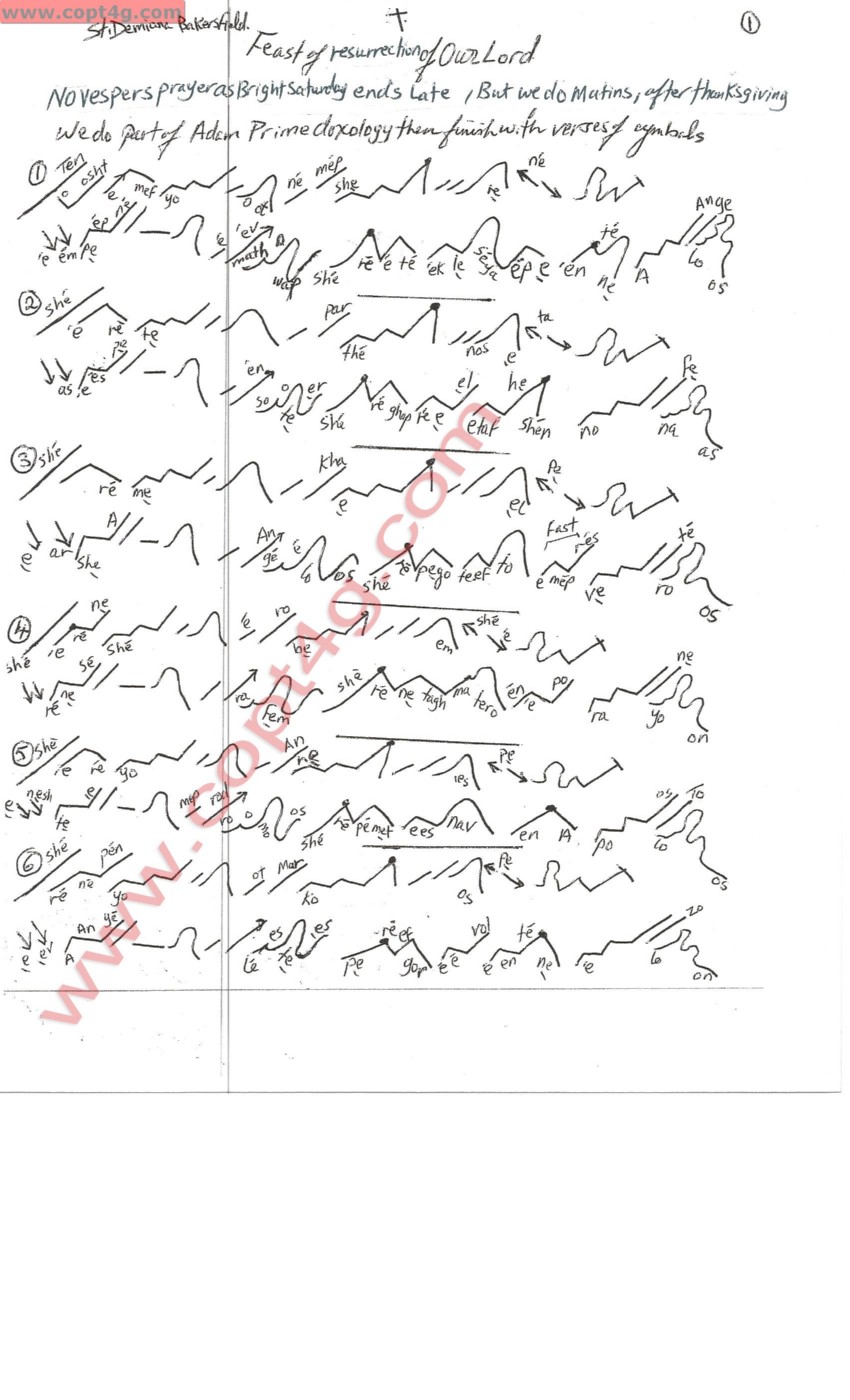 www.copt4g.com
St. Demiana Bakersfield.
1
Feast of resurrection of Our Lord
No vespers prayer as Bright Saturday ends Late, But we do Matins, after thanksgiving
We do part of Adam Prime doxology then finish with verses of cymbals
1 Ten o osht e mef yo o né mép she né
'e ém pe ép né 'e 'ev math she ré é té ek le sé ya ép e én té ne A Ange lo os
2 shé 'é ré te par thé nos e ta
as e és 'en so o te er shé ré ghap ré e el etaf he shén no na fe as
3 shé ré me kha e el pe
e ar she A An gé é lo os shé pe go teef to fast e mép rés ve ro té os
4 shé 'e ré ne shé 'é ro be em shé é
ré ne sé ra fem shé ré ne tagh ma tero én e po ra yo ne on
5 shé ré yo An es pe
e nesh te e mep ro o os shé ré pé met ees nav en A po os lo To os
6 shé ré né pén yo of Mar ko os pe
e ev A An gé le es te es pe réef gor é é vol é en té ne e lo zo on
www.copt4g.com